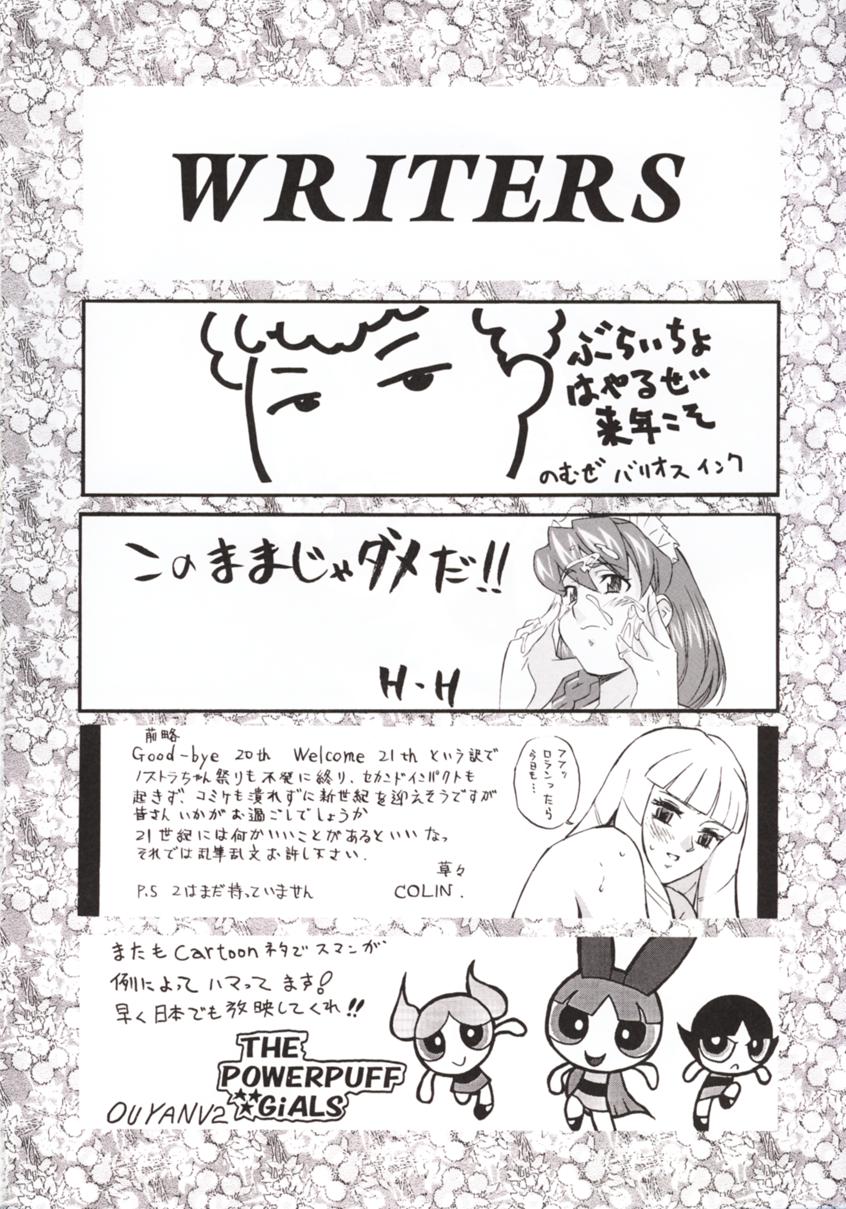 WRITERS
ぶらいちょ
はやるぜ
来年こそ
のむぜ バリオス インク
このままじゃダメだ!!
H-H
前略
Good-bye 20th Welcome 21th という訳で
ノストラちゃん祭りも不発に終り、セカンドインパクトも
起きず、コミケも潰れずに新世紀を迎えそうですが
皆さんいかがお過ごしでしょうか
21世紀には何かいいことがあるといいなっ
それでは乱筆乱文お許し下さい.
草々
P.S 2はまだ持っていません
COLIN.
アアッ
ロランったら
今日も…
またも Cartoon ネタでスマンが
例によって ハマって ます!
早く日本でも放映してくれ!!
THE
POWERPUFF
GiALS
OUYANV2